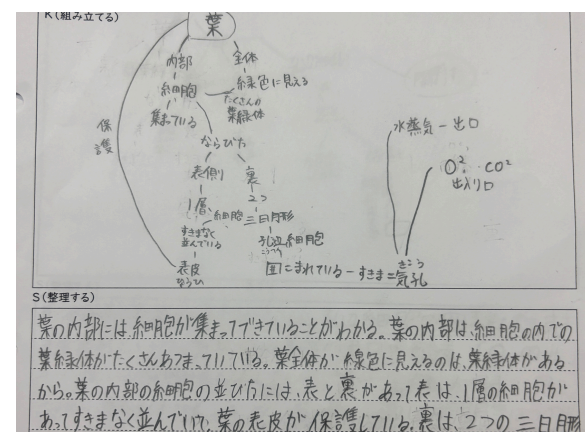 K(組み立てる)
葉
内部
全体
細胞
緑色に見える
たくさんの
葉緑体
集まっている
保護
ならびた
表側
裏
1層
2つ
細胞
三日月形
すきまなく
並んでいる
孔辺細胞
こうへん
表皮
囲こまれている-すきま=気孔
きこう
水蒸気-出口
O² CO²
出入り口
S(整理する)
葉の内部には細胞が集まってできていることがわかる。葉の内部は、細胞の内での
葉緑体がたくさんあつまっていている。葉全体が緑色に見えるのは、葉緑体がある
から。葉の内部の細胞の並びたには、表と裏があって表は、1層の細胞が
あってすきまなく並んでいて、葉の表皮が保護している。裏は、2つの三日月形